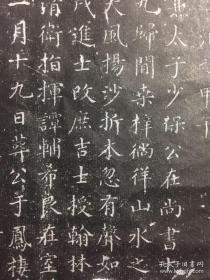 兼太子少保公在尚書
九歸閒桒梓徜徉山水之
大風揚沙折木忽有聲如
戌進士改庶吉士授翰林
清衛指揮譚輔希良在室
二月十九日葬公于鳳棲